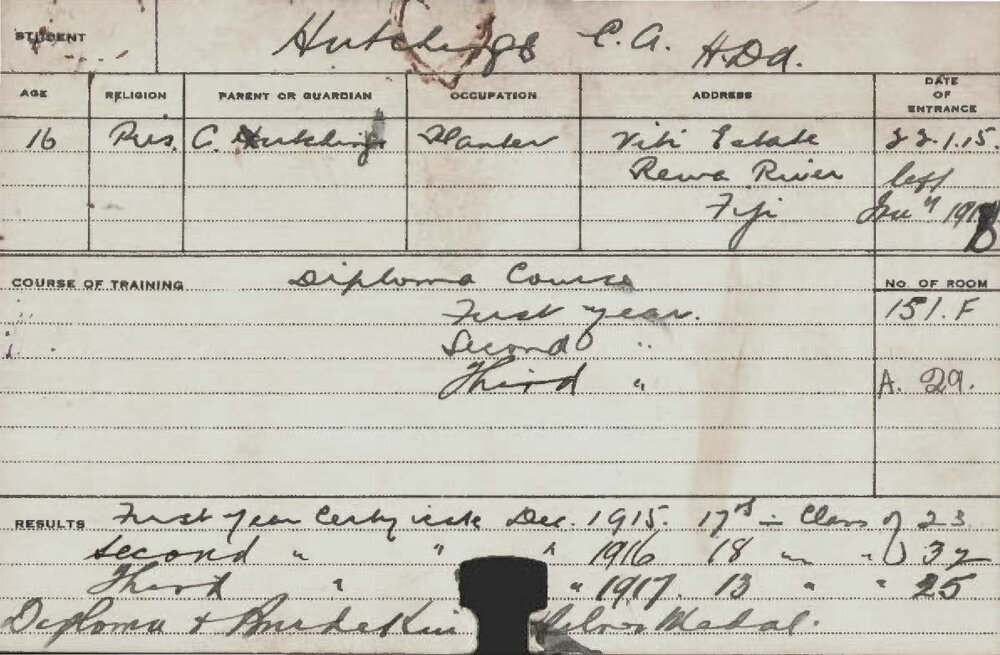 STUDENT Hutchings C.A. H.D.A.
AGE RELIGION PARENT OR GUARDIAN OCCUPATION ADDRESS DATE OF ENTRANCE
16 Pres. C. Hutchings Planter Viti Estate 22.1.15.
Rewa River left
Fiji Jany 1918
COURSE OF TRAINING Diploma Course No. OF ROOM
First year. 151.F
Second "
Third " A. 29.
RESULTS First year Certificate Dec. 1915. 17th in Class of 23
Second " " " 1916 18 " " " 32
Third " " 1917. 13 " " 25
Diploma & Burdekin Silver Medal.